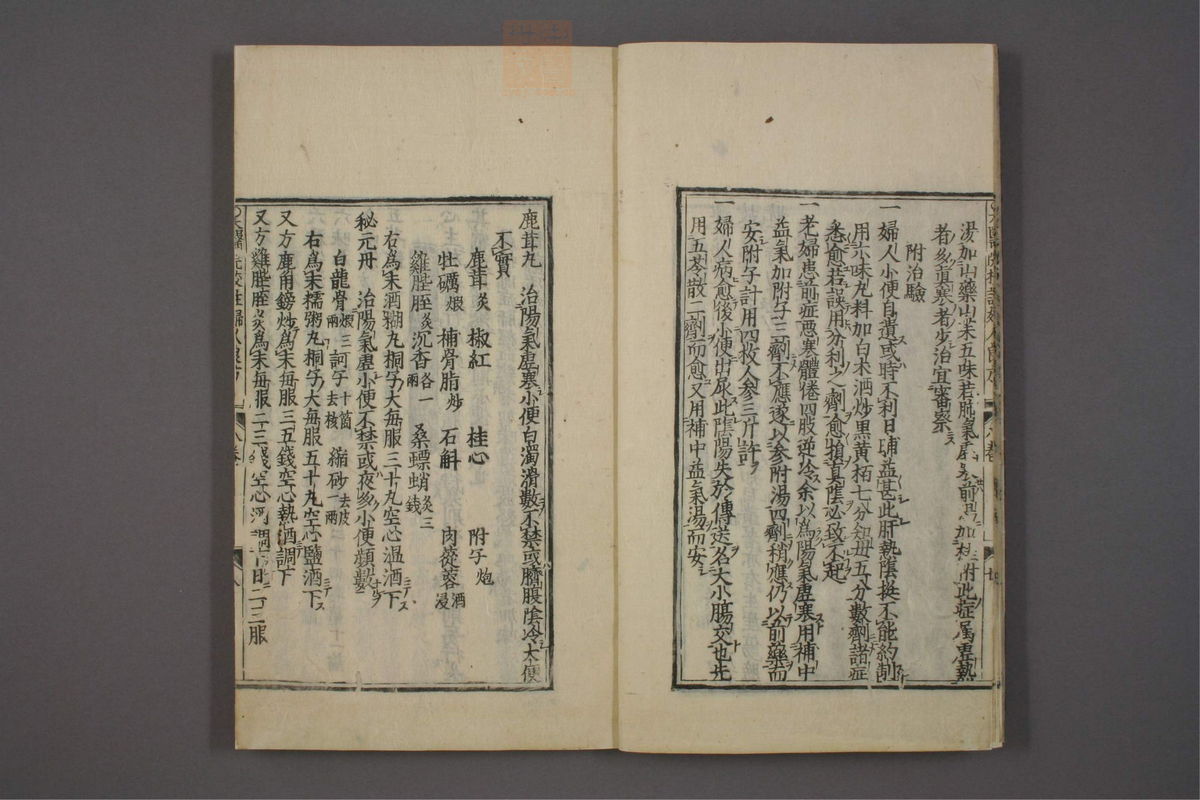 湯加山藥山茱五味若肺氣虛寒前湯加桂附此症屬虛熱
者多眞寒者少治宜審察
附治驗
一婦人小便自遺或時不利日晡益甚此肝熱陰挺不能約制
用六味丸料加白朮酒炒黑黃栢七分知母五分數劑諸症
悉愈若誤用分利之劑愈損眞陰必致不起
一老婦患前症惡寒體倦四肢逆冷余以爲陽氣虛寒用補中
益氣加附子三劑不應遂以參附湯四劑稍應仍以前藥而
安附子計用四枚人參三斤許
一婦人病愈後小便出屎此陰陽失於傳送名大小腸交也先
用五苓散二劑而愈又用補中益氣湯而安
鹿茸丸 治陽氣虛寒小便白濁滑數不禁或臍腹陰冷大便
不實
鹿茸炙 椒紅 桂心 附子炮
牡礪煅 補骨脂炒 石斛 肉蓯蓉酒浸
雞膍胵炙 沉香各一兩 桑螵蛸炙三錢
右爲末酒糊丸桐子大每服三十丸空心溫酒下
秘元丹 治陽氣虛小便不禁或夜多小便頻數
白龍骨煅三兩 訶子十箇去核 縮砂去皮一兩
右爲末糯粥丸桐子大每服五十丸空心鹽酒下
又方鹿角鎊炒爲末每服三五錢空心熱酒調下
又方雞膍胵炙爲末每服二三錢空心酒調下日二三服